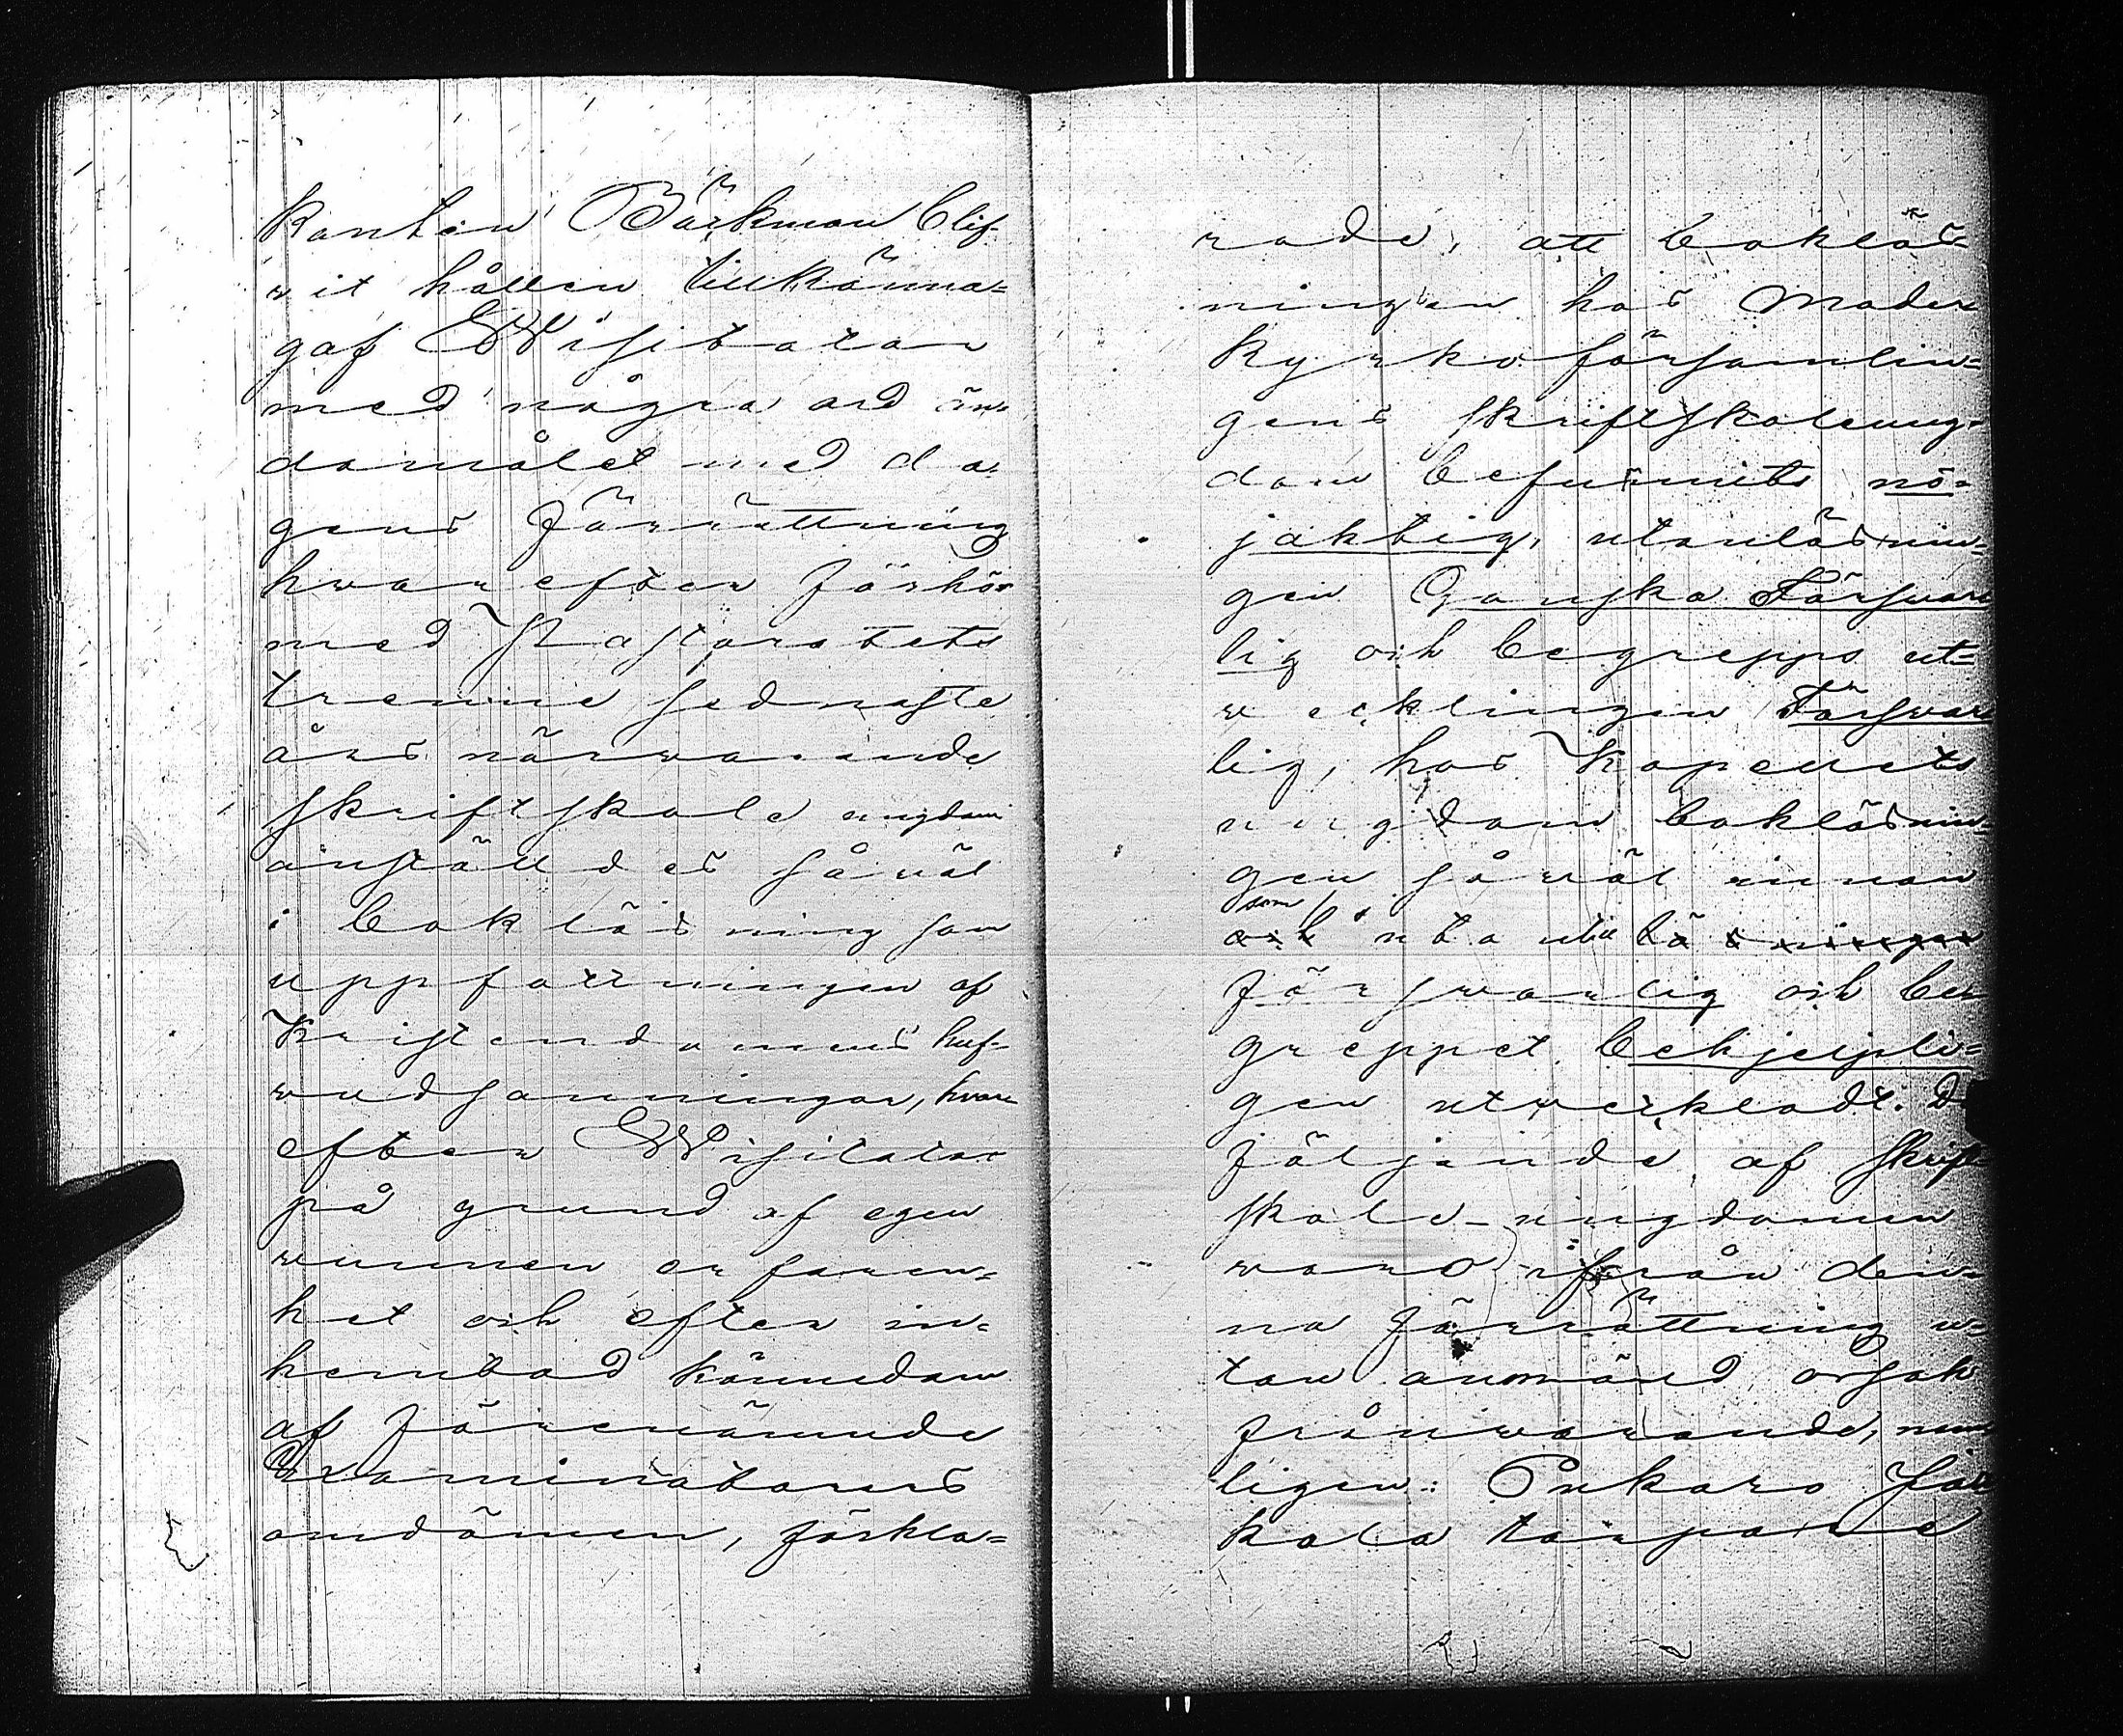 kanten Bäckman blif-
vit hållen tillkänna-
gaf Wisitator
med några ord än-
damålet med da-
gens förrättning
hvarefter förhör
med Pastoratets
trenne sednaste
års närvarande
skriftskole ungdom
anställdes såväl
i bokläsning som
uppfattningen af
Kristendomens huf-
vudsanningar, hvar-
efter Wisitator
på grund af egen
vunnen erfaren-
het och efter in-
hemtad kännedom
af förenämnde
Examinatorers
omdömen, förkla-
rade, att bokläs-
ningen hos Moder-
kyrko församlin-
gens skriftskoleung-
dom befunnits nö-
jaktig, utanläsnin-
gen Ganska Försvar-
lig och begrepps ut-
vecklingen Försvar-
lig, hos Kapellets
ungdom bokläsnin-
gen såväl innan
som
och utantill läsningen
försvarlig och be-
greppet behjelpli-
gen utveckladt. De
följande af skrift-
skole-ungdomen
voro ifrån den-
na förrättning u-
tan anmäld orsak
frånvarande, nem-
ligen: Pukaro
kala torpare